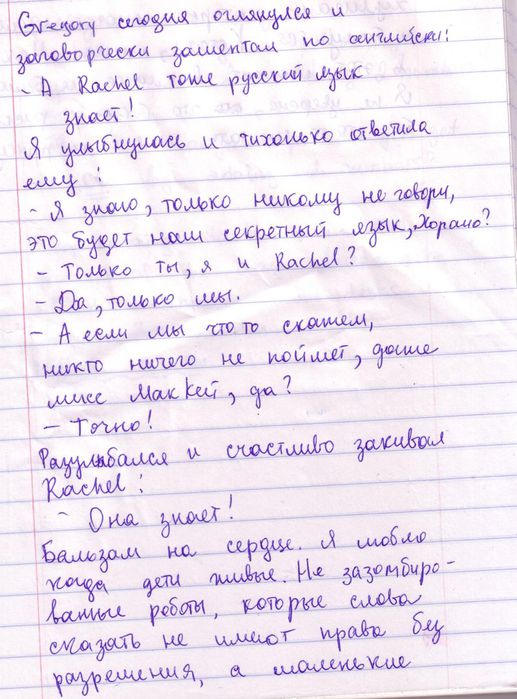 Gregory сегодня оглянулся и
заговорчески зашептал по английски:
- А Rachel тоже русский язык
знает!
Я улыбнулась и тихонько ответила
ему:
- Я знаю, только никому не говори,
это будет наш секретный язык, Хорошо?
- Только ты, я и Rachel?
- Да, только мы.
- А если мы что то скажем,
никто ничего не поймет, даже
мисс МакКей, да?
- Точно!
Разулыбался и счастливо закивал
Rachel:
- Она знает!
Бальзам на сердце. Я люблю
когда дети живые. Не зазомбиро-
ванные роботы, которые слова
сказать не имеют права без
разрешения, а маленькие